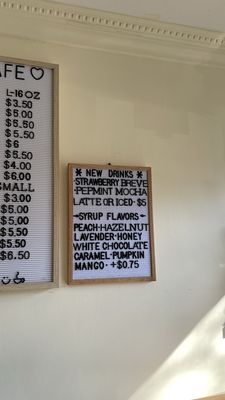 AFE ♡
L-16OZ
$3.50
$5.00
$5.50
$5.50
$6
$5.50
$4.00
$6.00
SMALL
$3.00
$5.00
$5.00
$5.50
$5.50
$6.50
* NEW DRINKS *
·STRAWBERRY BREVE
·PEPMINT MOCHA
LATTE OR ICED·$5
·SYRUP FLAVORS·
PEACH·HAZELNUT
LAVENDER·HONEY
WHITE CHOCOLATE
CARAMEL·PUMPKIN
MANGO· +$0.75